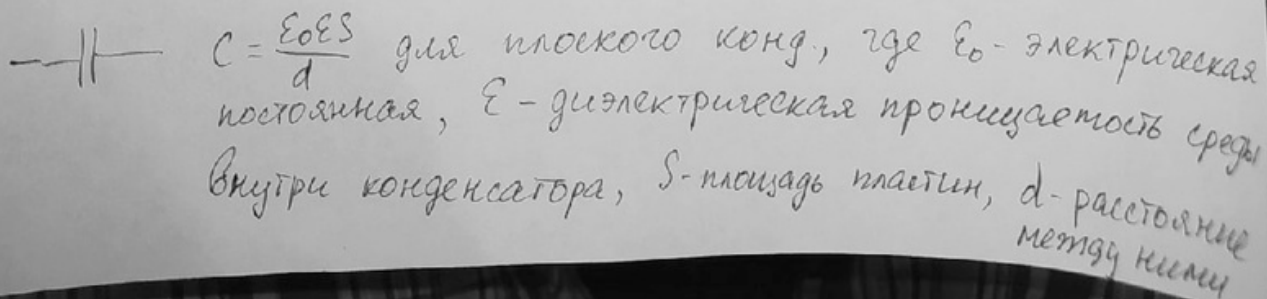 C = ε₀εS/d для плоского конд., где ε₀ - электрическая
постоянная, ε - диэлектрическая проницаемость среды
внутри конденсатора, S - площадь пластин, d - расстояние
между ними